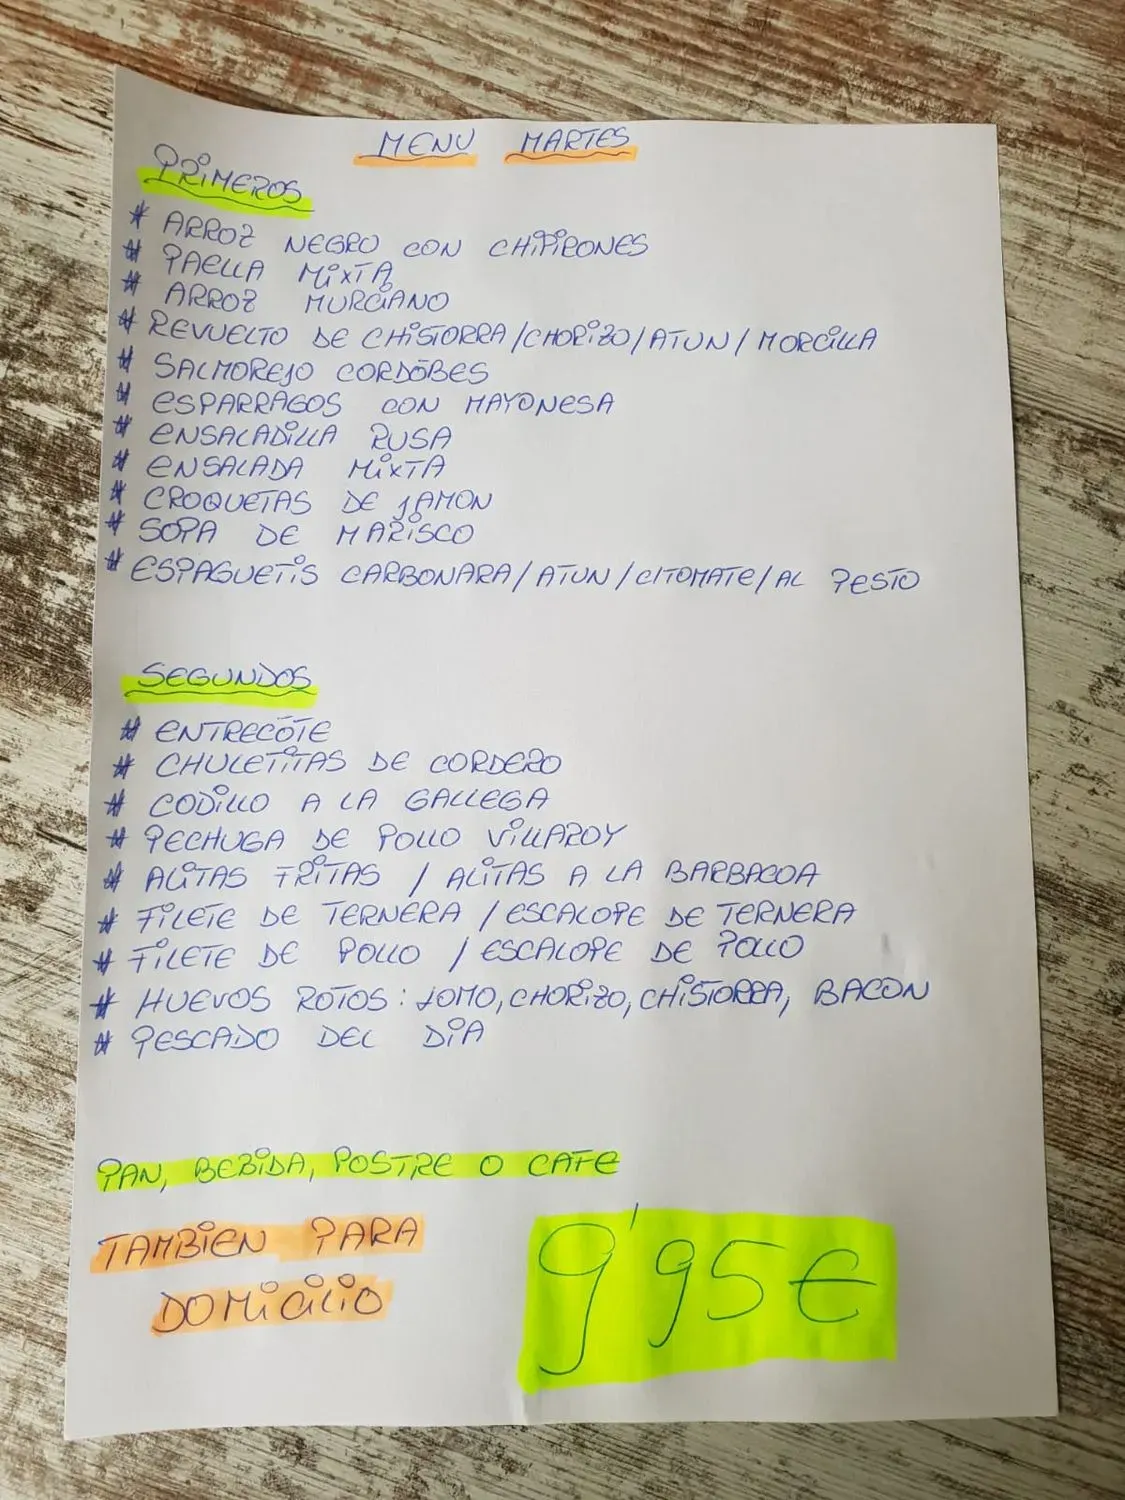 MENU MARTES
PRIMEROS
# ARROZ NEGRO CON CHIPIRONES
# PAELLA MIXTA
# ARROZ MURCIANO
# REVUELTO DE CHISTORRA/CHORIZO/ATUN/MORCILLA
# SALMOREJO CORDÓBES
# ESPARRAGOS CON MAYONESA
# ENSALADILLA RUSA
# ENSALADA MIXTA
# CROQUETAS DE JAMON
# SOPA DE MARISCO
# ESPAGUETIS CARBONARA/ATUN/C/TOMATE/AL PESTO
SEGUNDOS
# ENTRECÓTE
# CHULETITAS DE CORDERO
# CODILLO A LA GALLEGA
# PECHUGA DE POLLO VILLAROY
# ALITAS FRITAS / ALITAS A LA BARBACOA
# FILETE DE TERNERA / ESCALOPE DE TERNERA
# FILETE DE POLLO / ESCALOPE DE POLLO
# HUEVOS ROTOS: LOMO, CHORIZO, CHISTORRA, BACON
# PESCADO DEL DIA
PAN, BEBIDA, POSTRE O CAFE
TAMBIEN PARA
DOMICILIO
9'95€